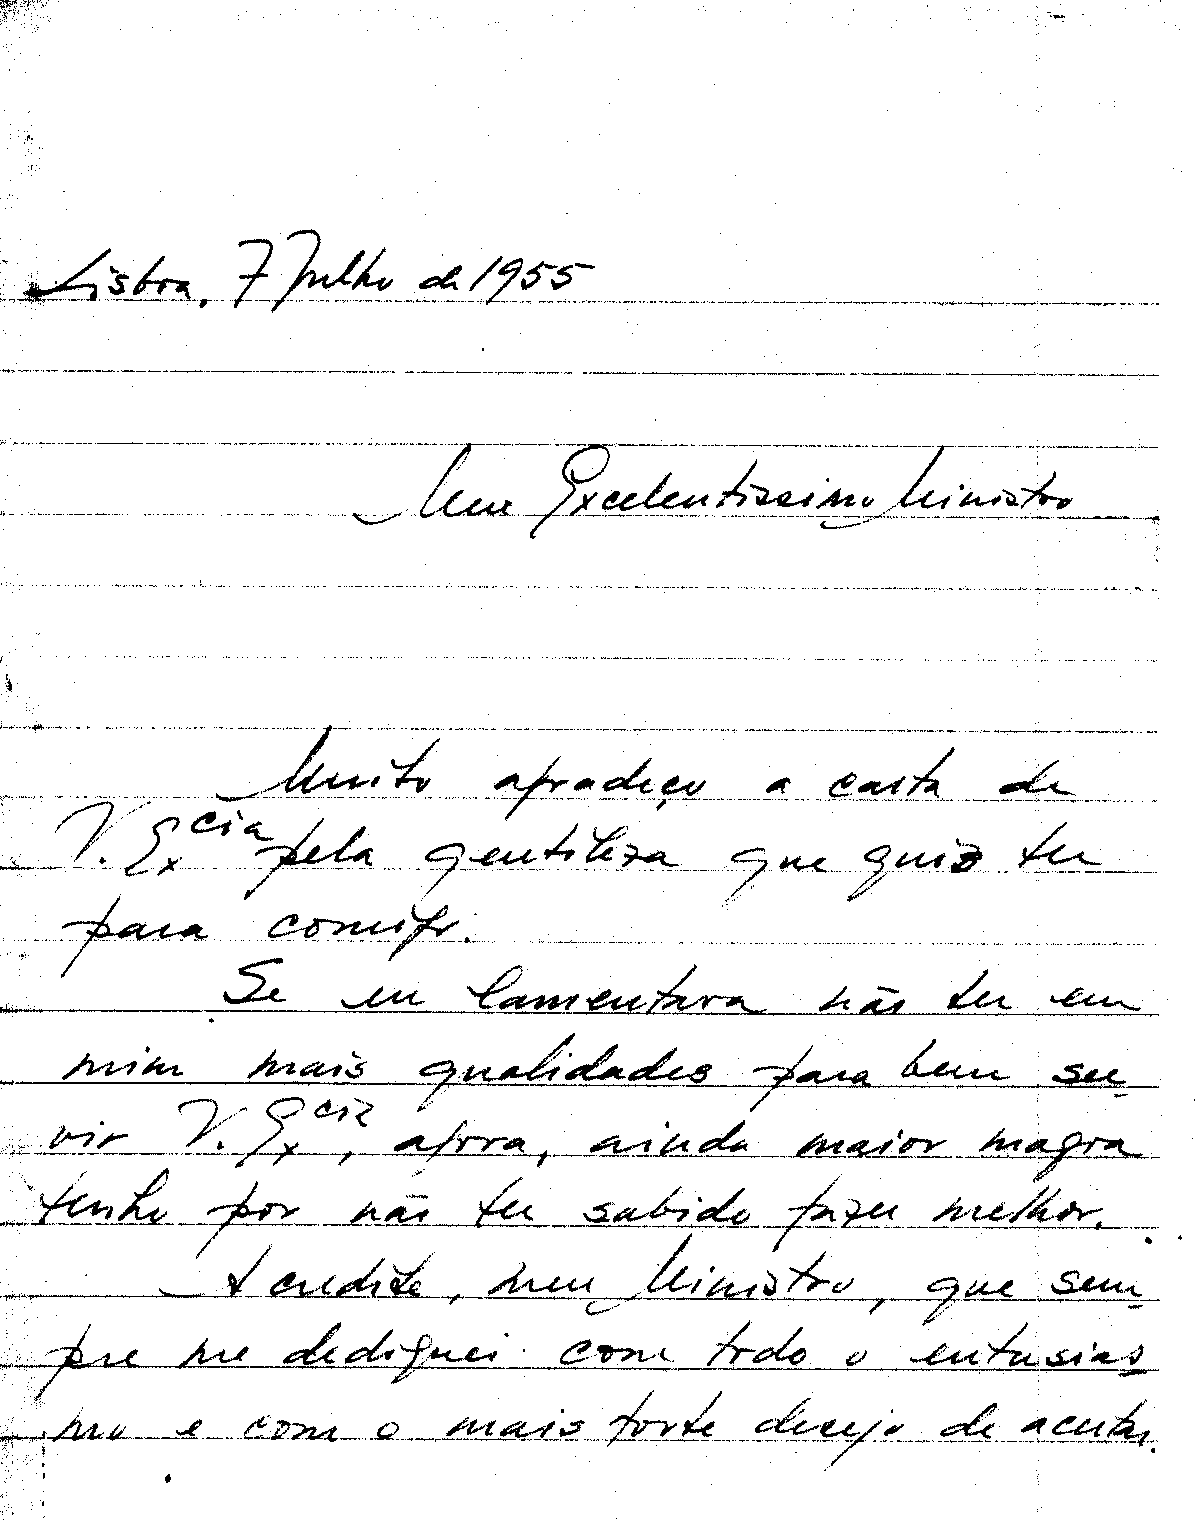 Lisboa, 7 Julho de 1955
Meu Excelentissimo Ministro
Muito agradeço a carta de
V. Ex<sup>cia</sup> pela gentileza que quiz ter
para comigo.
Se eu lamentava não ter em
mim mais qualidades para bem ser-
vir V. Ex<sup>cia</sup>, agora, ainda maior magoa
tenho por não ter sabido fazer melhor.
Acredite, meu Ministro, que sem-
pre me dediquei com todo o entusias
mo e com o mais forte desejo de acertar.